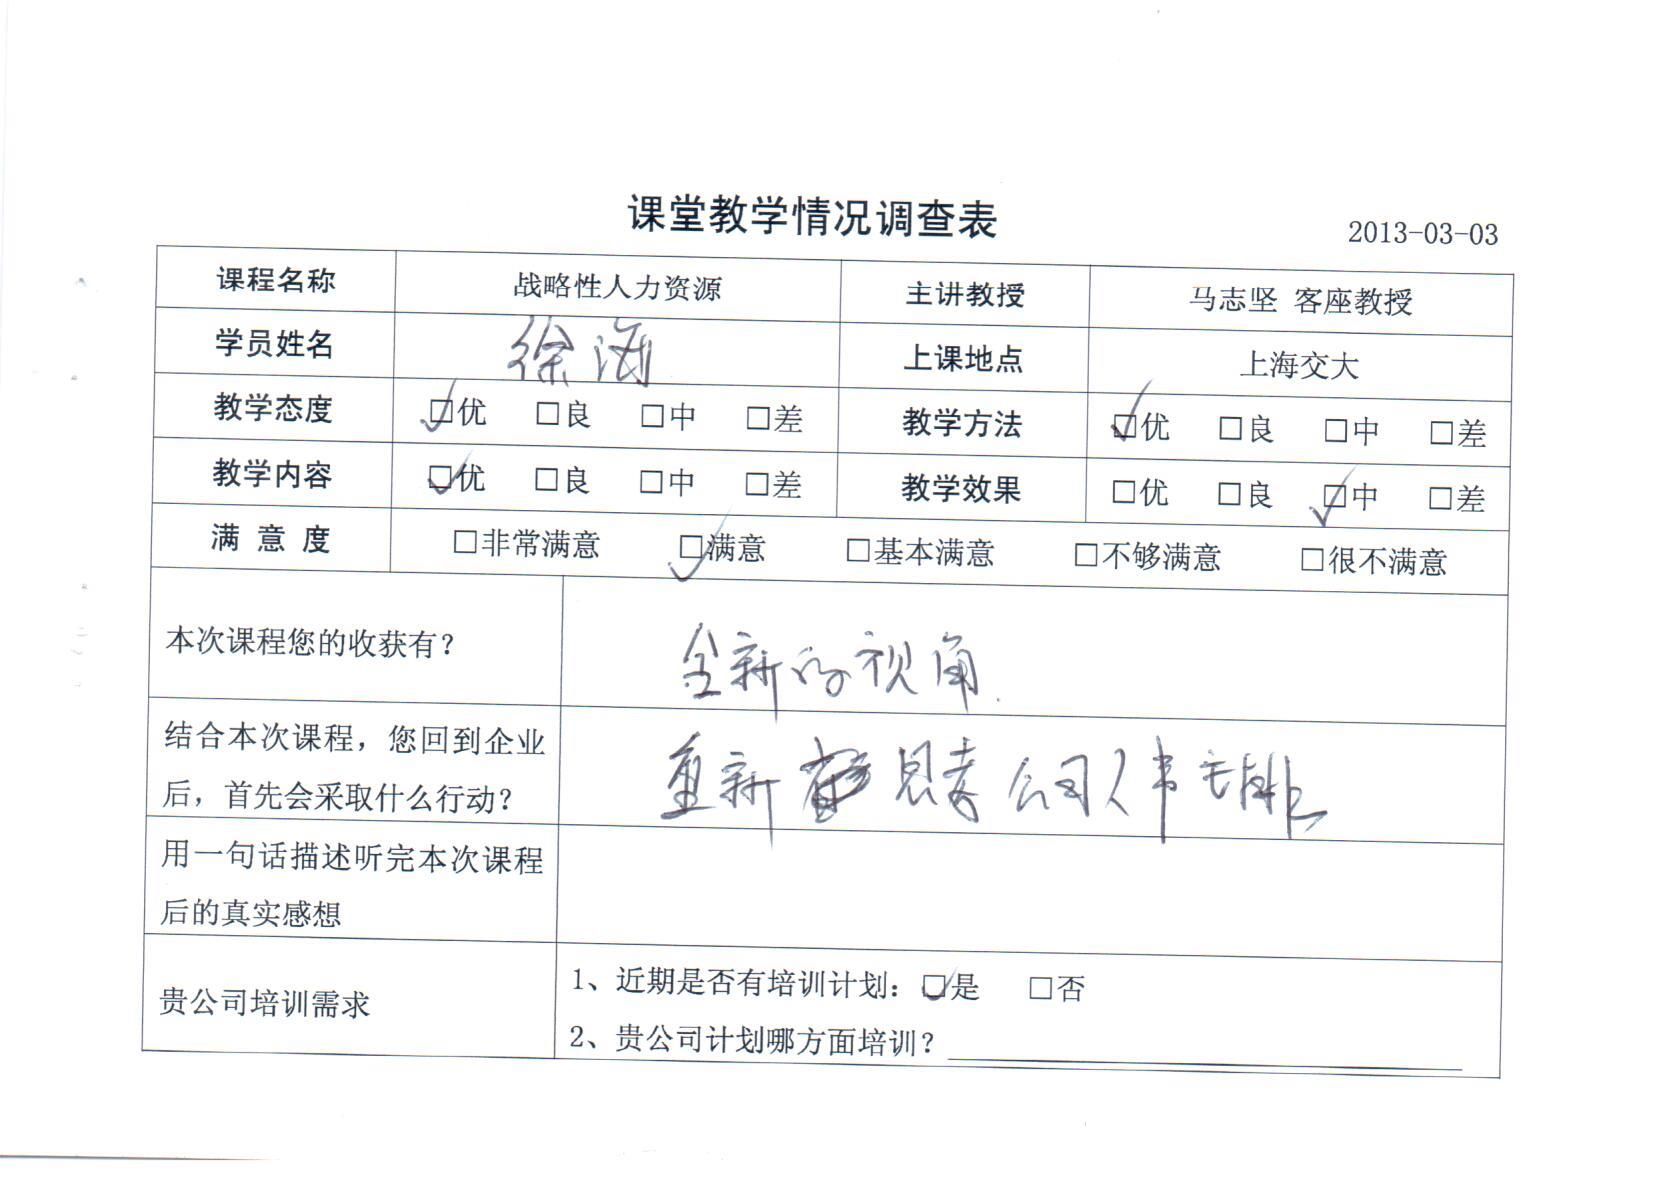 课堂教学情况调查表
2013-03-03
课程名称 战略性人力资源 主讲教授 马志坚 客座教授
学员姓名 徐海 上课地点 上海交大
教学态度 ☑优 □良 □中 □差 教学方法 ☑优 □良 □中 □差
教学内容 ☑优 □良 □中 □差 教学效果 □优 □良 ☑中 □差
满意度 □非常满意 ☑满意 □基本满意 □不够满意 □很不满意
本次课程您的收获有? 全新的视角.
结合本次课程,您回到企业
后,首先会采取什么行动? 重新 思考 公司人事安排
用一句话描述听完本次课程
后的真实感想
贵公司培训需求
1、近期是否有培训计划: ☑是 □否
2、贵公司计划哪方面培训?